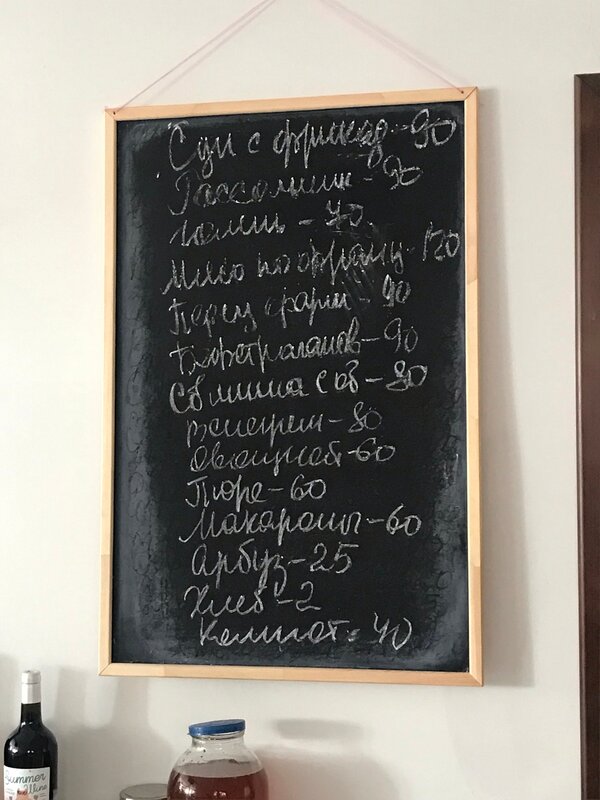 Суп с фрикад-90
Рассольник-90
-70
Мясо по франц-120
Перец фарш-90
Бефстроганов-90
Свинина с ов-80
Венгрет-80
Овощной-60
Пюре-60
Макароны-60
Арбуз-25
Хлеб-2
Компот-40
Summer
Wine